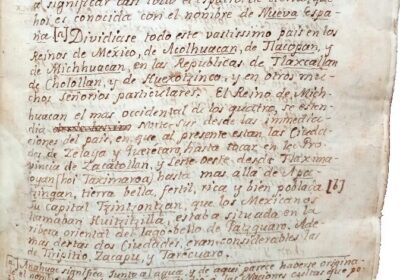 a significar casi todo el espacio de tierra, que
hoi es conocida con el nombre de Nueva Espa-
ña [a] Dividiase todo este vastissimo pais en los
Reinos de México, de Acolhuacan, de Tlacopan, y
de Michhuacan, en las Republicas de Tlaxcallan
de Cholollan, y de Huexotzinco, y en otros mu-
chos Señorios particulares. El Reino de Mich-
huacan el mas occidental de los quattro, se esten-
dia Norte-sur desde las immedia-
ciones del pais, en que al presente estan las Ciuda-
des de Zelaya y Queretaro, hasta tocar en la Pro-
vincia de Zacatollan, y Leste Oeste desde Tlaxima-
loyan [hoi Taximaroa] hasta mas alla de Apa-
tzingan, tierra bella, fertil, rica y bien poblada [b]
Su capital Tzintzontzan, que los Mexicanos
llamaban Huitzitzilla, estaba situada en la
ribera oriental del lago bello de Patzquaro. Ade-
mas destas dos Ciudades, eran considerables las
de Tiripitio, Zacapu, y Tarecuaro.
[a] Anahuac significa Junto al agua, y de aqui parece haverse origina-
do el nombre